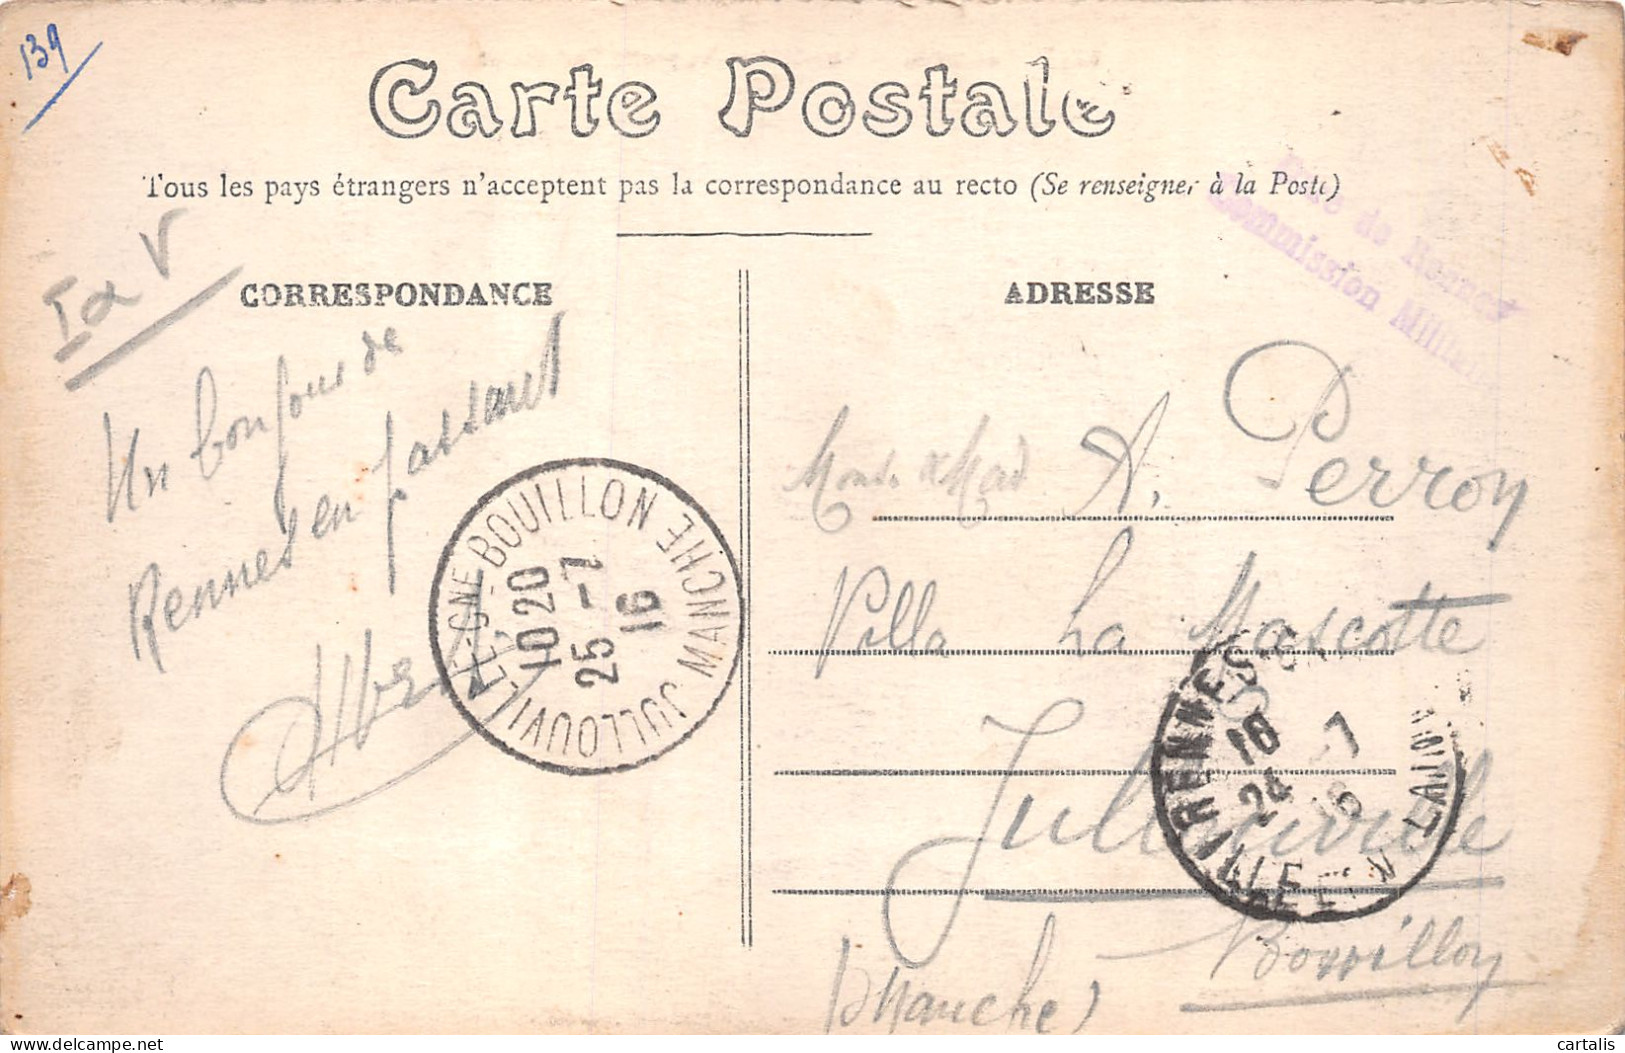 139
Carte Postale
Tous les pays étrangers n'acceptent pas la correspondance au recto (Se renseigner à la Poste)
de Rennes
Commission Militaire
CORRESPONDANCE
ADRESSE
Un bonjour de
Rennes en passant
Albert
JULLOUVILLE-GNE-BOUILLON MANCHE
10 20
25 -7
16
A. Perron
Villa La Mascotte
Jullouville
Bouillon
(Manche)
RENNES GARE
16
24 -7
16
ILLE-ET-VILAINE
delcampe.net
cartalis